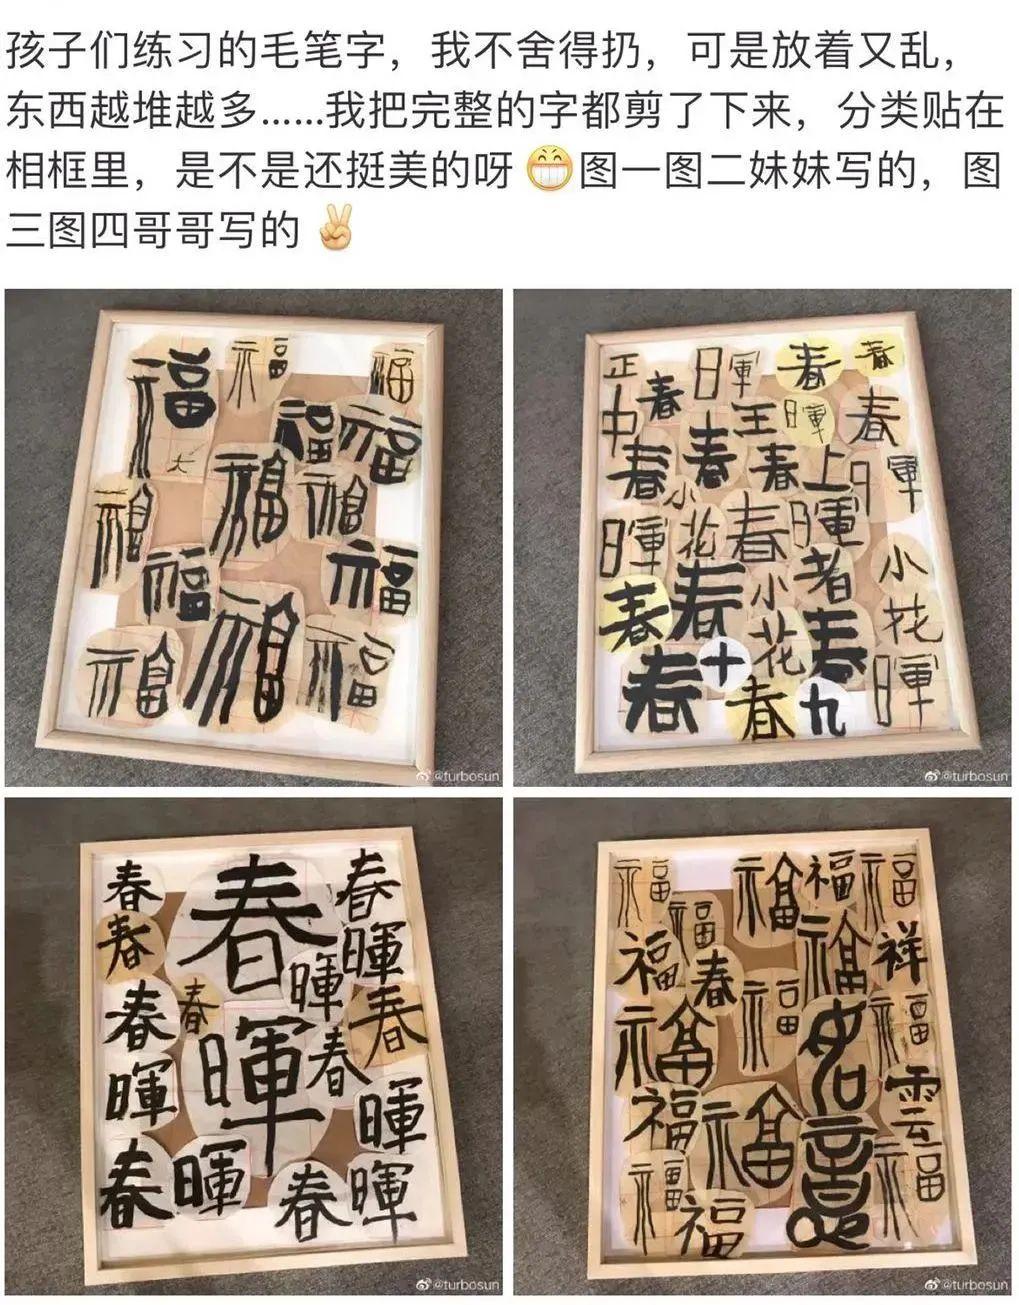 孩子们练习的毛笔字，我不舍得扔，可是放着又乱，
东西越堆越多……我把完整的字都剪了下来，分类贴在
相框里，是不是还挺美的呀😁图一图二妹妹写的，图
三图四哥哥写的✌
福 福 福
福 福
大
福 福 福
福 福
福 福 福
@turbosun
正 日暉 春 春
中 春 王 暉 春
春 春 春 上 日軍
小
日暉 花 春 暉 小
春 春 小 者 花
十 花 春 暉
春 春 九
@turbosun
春 春 春
春 暉 暉
春 春 暉 春 春
暉 暉
春 暉 春 暉
@turbosun
福 福 福 福
福 福 福 祥
春 福 福
福 如 雲
福 福 意 福
福 福
@turbosun